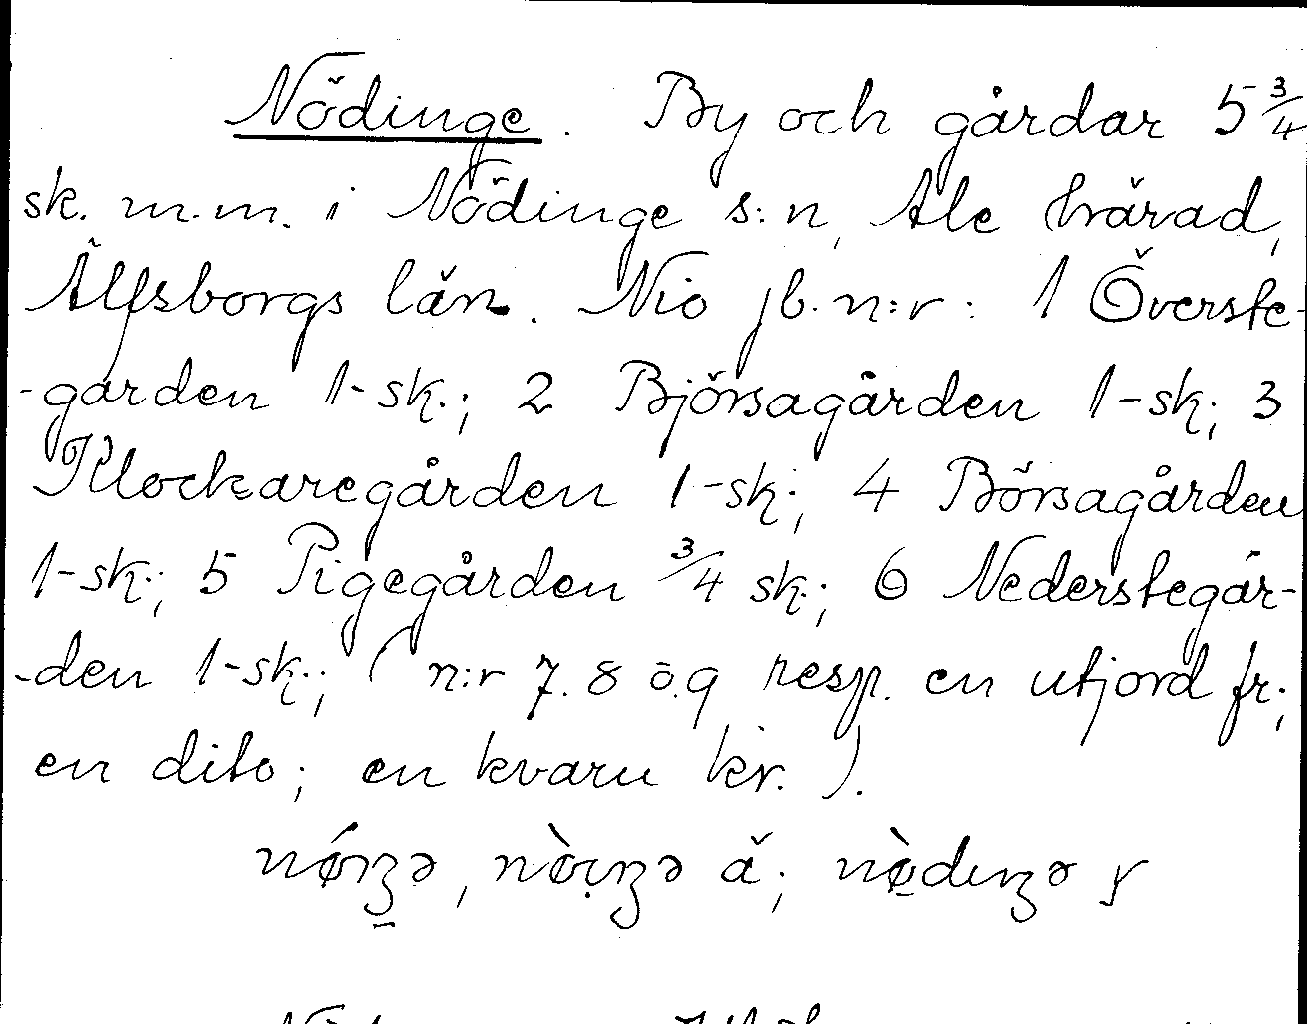 Nödinge. By och gårdar 5 3/4
sk. m.m. i Nödinge s:n, Ale härad,
Älfsborgs län. Nio jb. n:r: 1 Överste-
-gården 1-sk.; 2 Björsagården 1-sk; 3
Klockaregården 1-sk.; 4 Börsagården
1-sk.; 5 Pigegården 3/4 sk.; 6 Nederstegår-
-den 1-sk.; (n:r 7. 8 o. 9 resp. en utjord fr.;
en dito; en kvarn kr.).